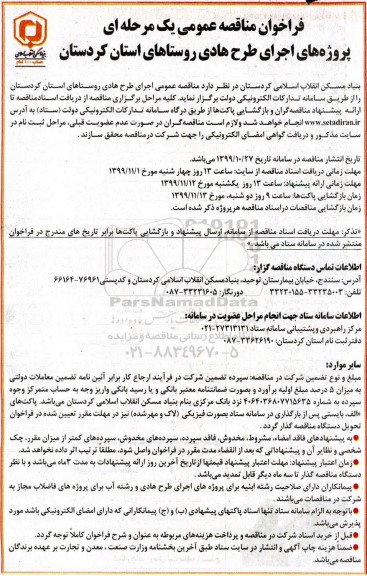 فراخوان مناقصه عمومی یک مرحله ای
پروژه‌های اجرای طرح هادی روستاهای استان کردستان
بنیاد مسکن انقلاب اسلامی کردستان در نظر دارد مناقصه عمومی اجرای طرح هادی روستاهای استان کردستان
را از طریق سامانه تدارکات الکترونیکی دولت برگزار نماید. کلیه مراحل برگزاری مناقصه از دریافت اسنادمناقصه تا
ارائه پیشنهاد مناقصه‌گران و بازگشایی پاکت‌ها از طریق درگاه سامانه تدارکات الکترونیکی دولت (ستاد) به آدرس
www.setadiran.ir انجام خواهد شد و لازم است مناقصه‌گران در صورت عدم عضویت قبلی، مراحل ثبت نام در
سایت مذکور و دریافت گواهی امضای الکترونیکی را جهت شرکت درمناقصه محقق سازند.
تاریخ انتشار مناقصه در سامانه تاریخ ۱۳۹۹/۱۰/۲۷ می‌باشد.
مهلت زمانی دریافت اسناد مناقصه از سایت: ساعت ۱۳ روز چهار شنبه مورخ ۱۳۹۹/۱۱/۱
مهلت زمانی ارائه پیشنهاد: ساعت ۱۳ روز یکشنبه مورخ ۱۳۹۹/۱۱/۱۲
زمان بازگشایی پاکت‌ها: ساعت ۹ روز دو شنبه، مورخ ۱۳۹۹/۱۱/۱۳
زمان بازگشایی مناقصات دراسناد مناقصه هرپروژه ذکر شده است.
«تذکر: مهلت دریافت اسناد مناقصه از سامانه، ارسال پیشنهاد و بازگشایی پاکت‌ها برابر تاریخ های مندرج در فراخوان
منتشر شده در سامانه ستاد می باشد.»
اطلاعات تماس دستگاه مناقصه گزار:
آدرس: سنندج، خیابان بیمارستان توحید، بنیادمسکن انقلاب اسلامی کردستان و کدپستی ۷۶۹۶۱-۶۶۱۶۴
تلفن: ۳۳۲۳۵۰۰۳-۳۳۲۳۰۱۵۵ دورنگار: ۳۳۲۳۱۶۰۵-۰۸۷
اطلاعات سامانه ستاد جهت انجام مراحل عضویت در سامانه:
مرکز راهبردی وپشتیبانی سامانه ستاد ۲۷۳۱۳۱۳۱-۰۲۱
دفتر ثبت نام استان کردستان: ۳۳۶۲۶۱۹۰-۰۸۷
ParsNamadData
۰۲۱-۸۸۳۴۹۶۷۰-۵
سایر موارد:
مبلغ و نوع تضمین شرکت در مناقصه: سپرده تضمین شرکت در فرآیند ارجاع کار برابر آئین نامه تضمین معاملات دولتی
به میزان ۵ درصد مبلغ اولیه برآورد و بصورت ضمانتنامه معتبر بانکی و یا رسید بانکی واریز وجه به حساب متمرکز وجوه
سپرده به شماره ۴۰۶۴۰۳۶۸۰۷۷۱۵۶۳۵ نزد بانک مرکزی بنام بنیاد مسکن انقلاب اسلامی کردستان می‌باشد. پاکت‌های
«الف» بایستی پس از بارگذاری در سامانه ستاد بصورت فیزیکی (لاک و مهرشده) نیز در مهلت مقرر تعیین شده در فراخوان
تحویل دستگاه مناقصه گذار گردد.
● به پیشنهادهای فاقد امضاء، مشروط، مخدوش، فاقد سپرده، سپرده‌های مخدوش، سپرده‌های کمتر از میزان مقرر، چک
شخصی و نظایر آن و پیشنهاداتی که بعد از انقضاء مدت مقرر در فراخوان واصل شود، مطلقا ترتیب اثر داده نخواهد شد.
● زمان اعتبار پیشنهاد: مهلت اعتبار پیشنهاد قیمتها ازتاریخ آخرین روز ارائه پیشنهادات به مدت ۳ماه می‌باشد و با نظر
دستگاه مناقصه گذار تا سه ماه دیگر قابل تمدید می‌باشد.
● پیمانکاران دارای صلاحیت رشته ابنیه برای پروژه های اجرای طرح هادی و رشته آب برای پروژه های فاضلاب مجاز به
شرکت در مناقصات می‌باشند.
● باتوجه به الزام سامانه ستاد تنها اسناد پاکتهای پیشنهادی (ب) و (ج) پیمانکارانی که دارای امضای الکترونیکی باشد مورد
پذیرش می‌باشد.
● قبل از خرید اسناد شرکت در مناقصه و پرداخت هزینه‌های مربوطه به عنوان و شرح فراخوان کاملا توجه گردد.
● ضمنا هزینه چاپ آگهی و انتشار در سایت ستاد طبق آخرین بخشنامه وزارت صنعت ، معدن و تجارت بر عهده برندگان
مناقصه می‌باشد.